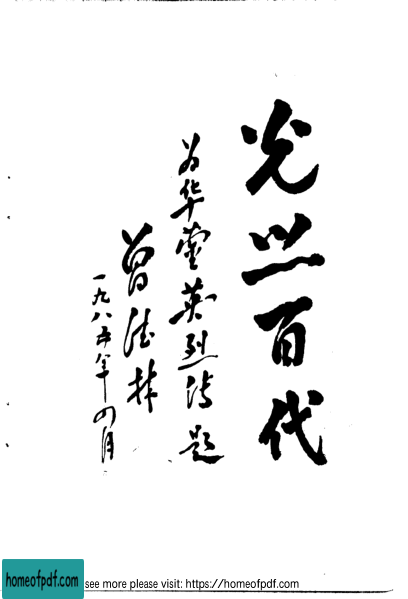 光照百代
为华蓥英烈传题
曾德林
一九八五年四月
homeofpdf.com
see more please visit: https://homeofpdf.com